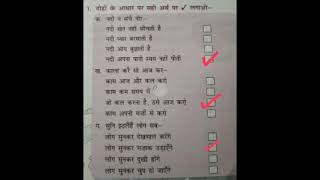 1. दोहों के आधार पर सही अर्थ पर ✓ लगाओ–
क. नदी न संचै नीर-
नदी खेत नहीं सींचती है
नदी प्यार बरसाती है
नदी आग बुझाती है
नदी अपना पानी स्वयं नहीं पीती
ख. काल्ह करै सो आज कर-
काम आज और कल करो
काम कम समय में
जो कल करना है, उसे आज करो
काम अपनी मर्जी से करो
ग. सुनि इठलैहैं लोग सब-
लोग सुनकर देखभाल करेंगे
लोग सुनकर मज़ाक उड़ाएँगे
लोग सुनकर दुखी होंगे
लोग सुनकर चुप हो जाएँगे